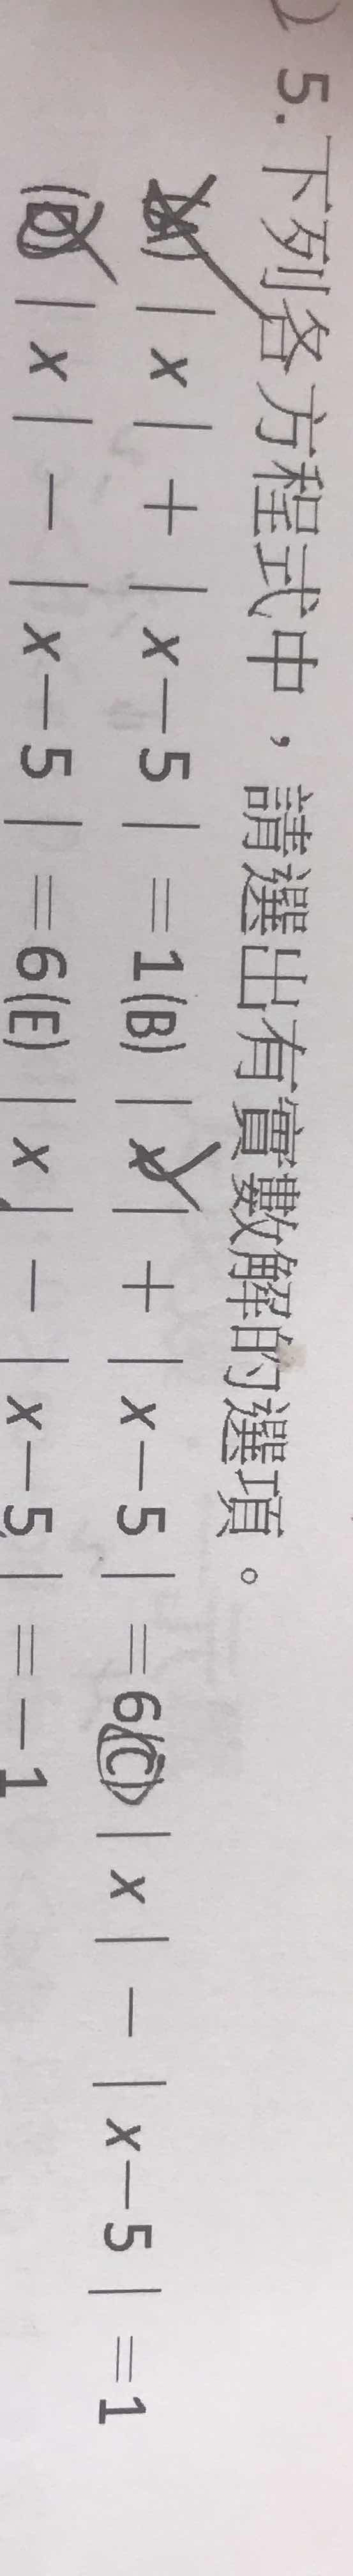 5.下列各方程式中，請選出有實數解的選項。
(A)|x|+|x−5|=1(B)|x|+|x−5|=6(C)|x|−|x−5|=1
(D)|x|−|x−5|=6(E)|x|−|x−5|=−1